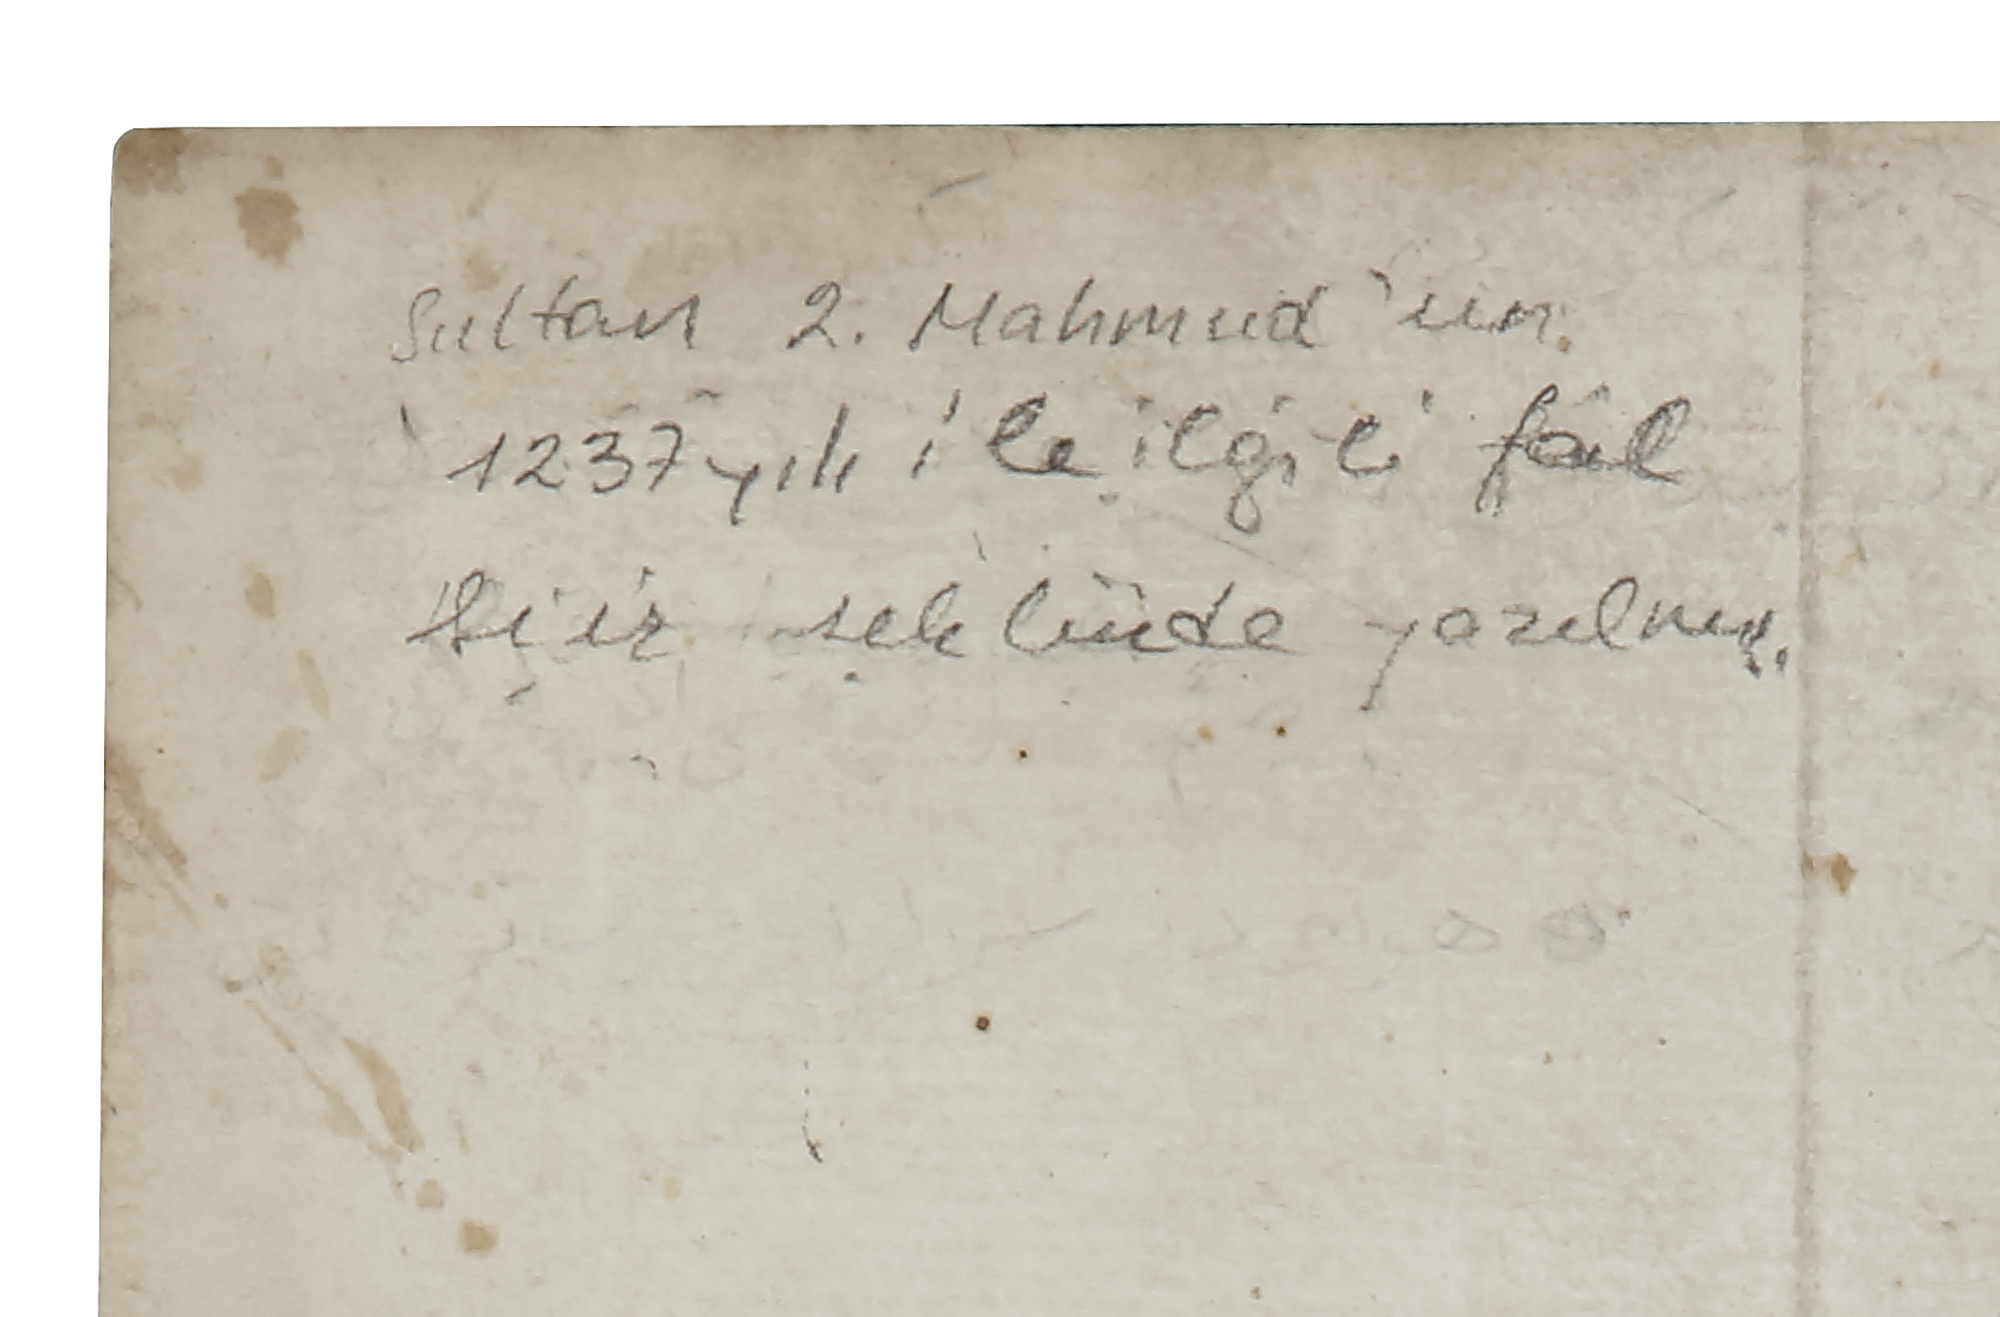 Sultan 2. Mahmud'un
1237 yılı ile ilgili fâl
Şiir şeklinde yazılmış.